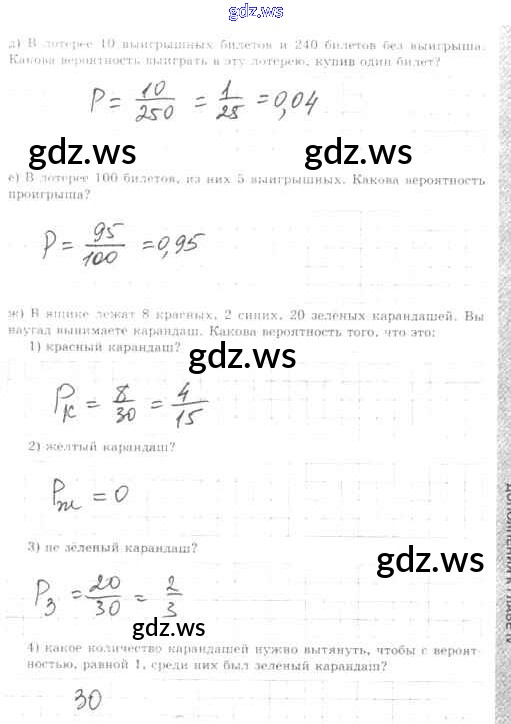 gdz.ws
д) В лотерее 10 выигрышных билетов и 240 билетов без выигрыша.
Какова вероятность выиграть в эту лотерею, купив один билет?
P = 10/250 = 1/25 = 0,04
gdz.ws gdz.ws
е) В лотерее 100 билетов, из них 5 выигрышных. Какова вероятность
проигрыша?
P = 95/100 = 0,95
ж) В ящике лежат 8 красных, 2 синих, 20 зеленых карандашей. Вы
наугад вынимаете карандаш. Какова вероятность того, что это:
1) красный карандаш?
gdz.ws
Pк = 8/30 = 4/15
2) жёлтый карандаш?
Pж = 0
3) не зелёный карандаш?
gdz.ws
Pз = 20/30 = 2/3
gdz.ws
4) какое количество карандашей нужно вытянуть, чтобы с вероят-
ностью, равной 1, среди них был зеленый карандаш?
30